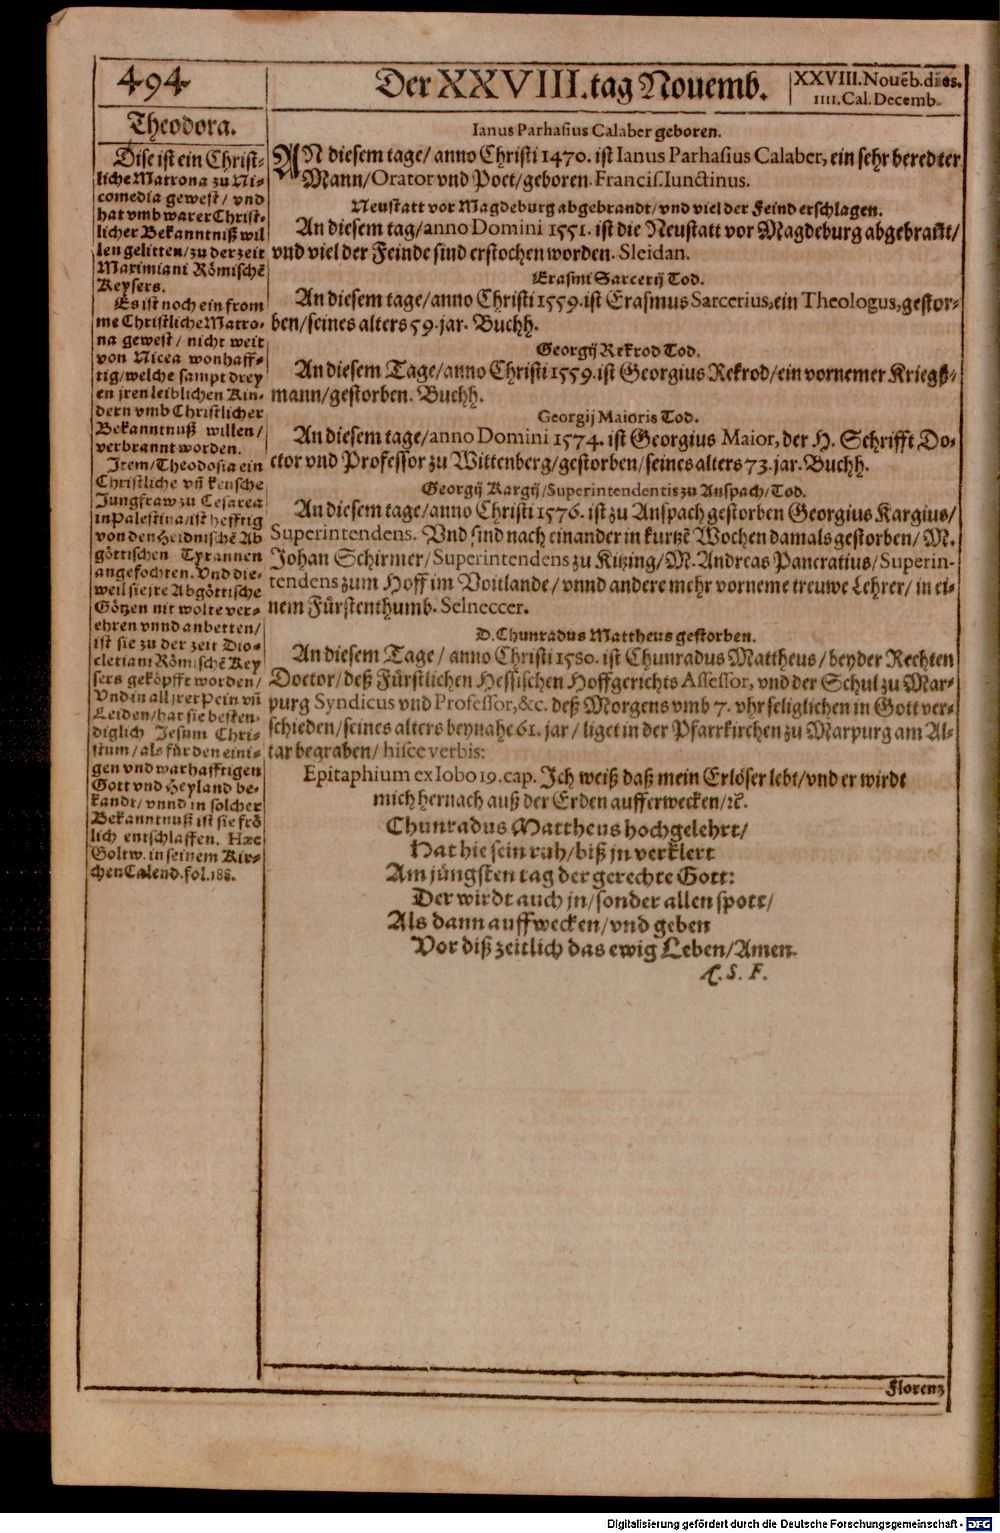 494
Der XXVIII. tag Nouemb.
XXVIII. Nouēb. dies.
IIII. Cal. Decemb.
Theodora.
Dise ist ein Christ-
liche Matrona zu Ni-
comedia gewest / vnd
hat vmb warer Christ-
licher Bekanntniß wil
len gelitten / zu der zeit
Maximiani Römischē
Keysers.
Es ist noch ein from
me Christliche Matro-
na gewest / nicht weit
von Nicea wonhaff-
tig / welche sampt drey
en jren leiblichen Kin-
dern vmb Christlicher
Bekanntnuß willen /
verbrannt worden.
Item / Theodosia ein
Christliche vñ keusche
Jungfraw zu Cesarea
in Palestina / ist hefftig
von den Heidnischē Ab
göttischen Tyrannen
angefochten. Vnd die-
weil sie jre Abgöttische
Götzen nit wolte ver-
ehren vnnd anbetten /
ist sie zu der zeit Dio-
cletiani Römischē Key
sers geköpfft worden /
Vnd in all jrer Pein vñ
Leiden / hat sie besten-
diglich Jesum Chri-
stum / als für den eini-
gen vnd warhafftigen
Gott vnd Heyland be-
kandt / vnnd in solcher
Bekanntnuß ist sie frö
lich entschlaffen. Hæc
Goltw. in seinem Kir-
chen Calend. fol. 188.
Ianus Parhasius Calaber geboren.
AN diesem tage / anno Christi 1470. ist Ianus Parhasius Calaber, ein sehr beredter
Mann / Orator vnd Poet / geboren. Francis. Iunctinus.
Neustatt vor Magdeburg abgebrandt / vnd viel der Feind erschlagen.
An diesem tag / anno Domini 1551. ist die Neustatt vor Magdeburg abgebrañt /
vnd viel der Feinde sind erstochen worden. Sleidan.
Erasmi Sarcerij Tod.
An diesem tage / anno Christi 1559. ist Erasmus Sarcerius, ein Theologus, gestor-
ben / seines alters 59. jar. Buchh.
Georgij Rekrod Tod.
An diesem Tage / anno Christi 1559. ist Georgius Rekrod / ein vornemer Kriegß-
mann / gestorben. Buchh.
Georgij Maioris Tod.
An diesem tage / anno Domini 1574. ist Georgius Maior, der H. Schrifft Do-
ctor vnd Professor zu Wittenberg / gestorben / seines alters 73. jar. Buchh.
Georgij Kargij / Superintendentis zu Anspach / Tod.
An diesem tage / anno Christi 1576. ist zu Anspach gestorben Georgius Kargius /
Superintendens. Vnd sind nach einander in kurtzē Wochen damals gestorben / M.
Johan Schirmer / Superintendens zu Kitzing / M. Andreas Pancratius / Superin-
tendens zum Hoff im Voitlande / vnnd andere mehr vorneme treuwe Lehrer / in ei-
nem Fürstenthumb. Selneccer.
D. Chunradus Mattheus gestorben.
An diesem Tage / anno Christi 1580. ist Chunradus Mattheus / beyder Rechten
Doctor / deß Fürstlichen Hessischen Hoffgerichts Assessor, vnd der Schul zu Mar-
purg Syndicus vnd Professor, &c. deß Morgens vmb 7. vhr seliglichen in Gott ver-
schieden / seines alters beynahe 61. jar / liget in der Pfarrkirchen zu Marpurg am Al-
tar begraben / hisce verbis:
Epitaphium ex Iobo 19. cap. Ich weiß daß mein Erlöser lebt / vnd er wirdt
mich hernach auß der Erden aufferwecken / ꝛc̄.
Chunradus Mattheus hochgelehrt /
Hat hie sein ruh / biß jn verklert
Am jüngsten tag der gerechte Gott:
Der wirdt auch jn / sonder allen spott /
Als dann auffwecken / vnd geben
Vor diß zeitlich das ewig Leben / Amen.
S. F.
Florenz
Digitalisierung gefördert durch die Deutsche Forschungsgemeinschaft - DFG